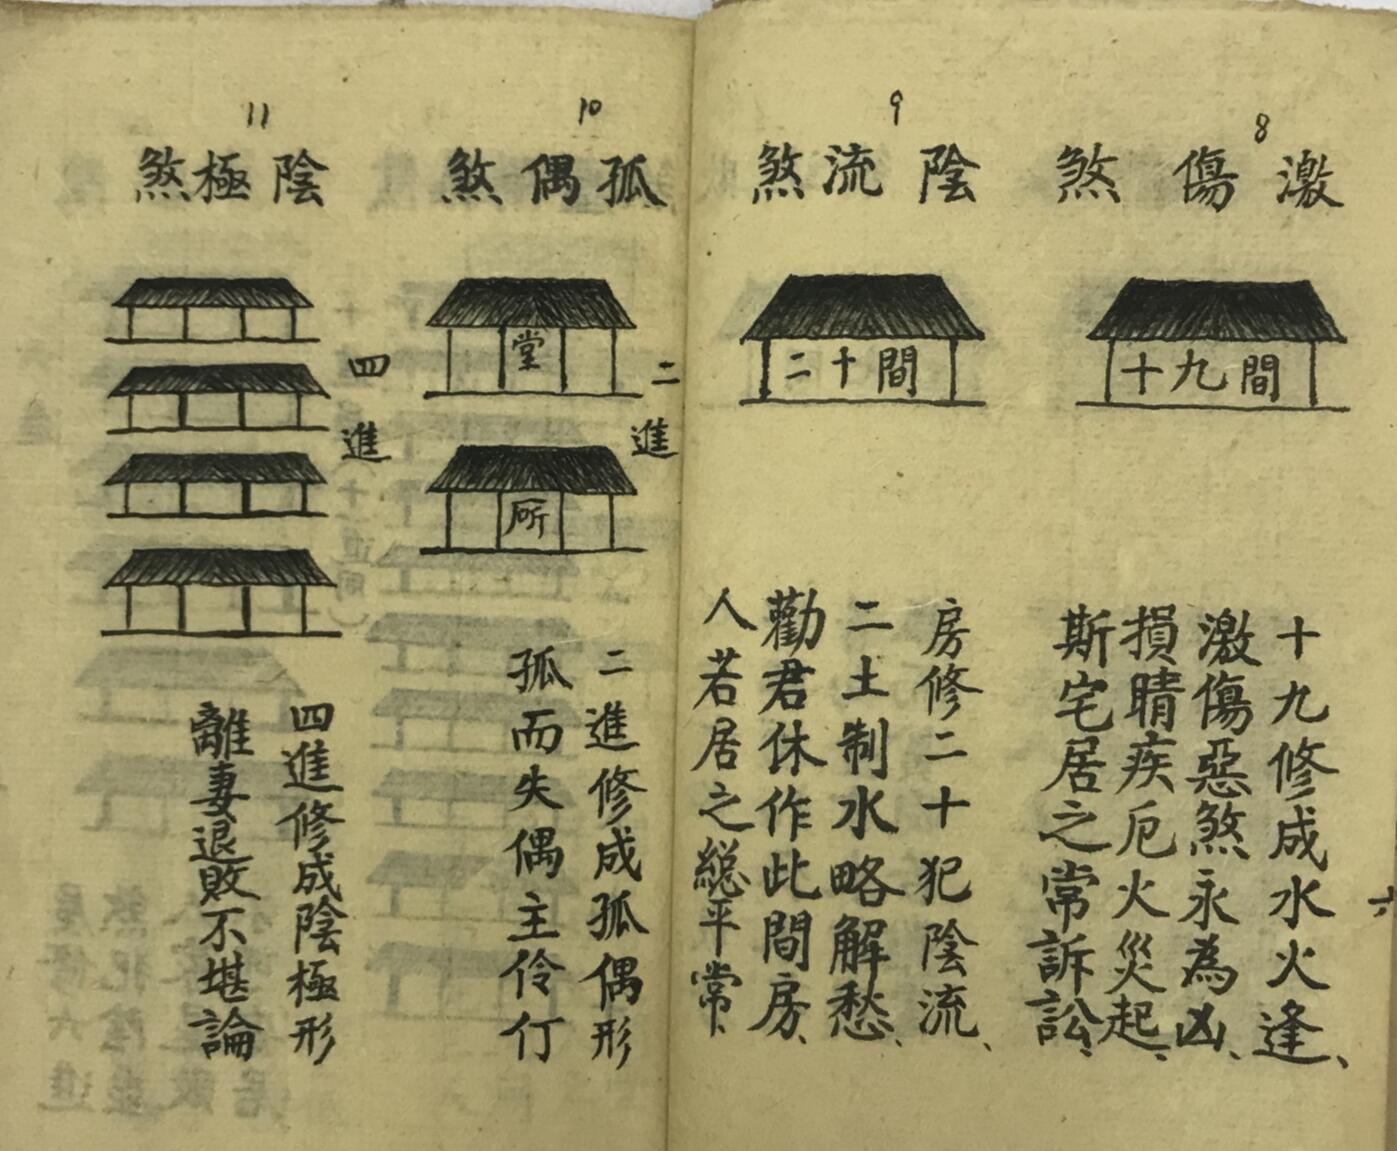 8
激傷煞
十九間
十九修成水火逢、
激傷惡煞永為凶、
損睛疾厄火災起、
斯宅居之常訴訟、
六
9
陰流煞
二十間
房修二十犯陰流、
二土制水略解愁、
勸君休作此間房、
人若居之縂平常、
10
孤偶煞
二進
堂
所
二進修成孤偶形
孤而失偶主伶仃
11
陰極煞
四進
四進修成陰極形
離妻退敗不堪論